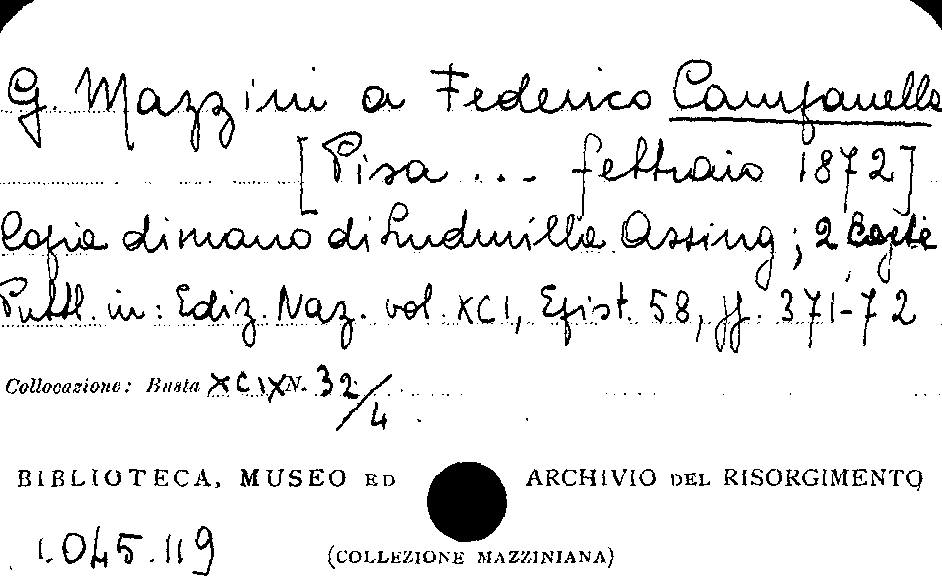 G. Mazzini a Federico Campanella
[Pisa ... febbraio 1872]
Copia di mano di Ludmilla Assing; 2 copie
Pubbl. in: Ediz. Naz. vol. XCI, Epist. 58, pp. 371-72
Collocazione: Busta XCIX N. 32/4
BIBLIOTECA, MUSEO ED ARCHIVIO DEL RISORGIMENTO
1.045.119
(COLLEZIONE MAZZINIANA)